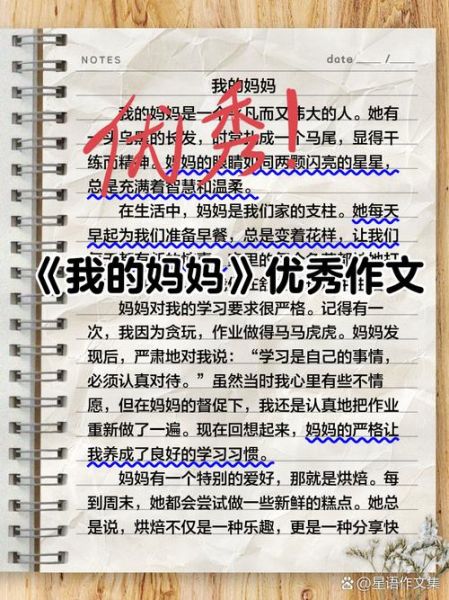 NOTES
date ____ /____
我的妈妈
我的妈妈是一个 凡而又伟大的人。她有
一头乌黑的长发，时常扎成一个马尾，显得干
练而精神。妈妈的眼睛如同两颗闪亮的星星，
总是充满着智慧和温柔。
优秀!
在生活中，妈妈是我们家的支柱。她每天
早起为我们准备早餐，总是变着花样，让我们
《我的妈妈》优秀作文
妈妈对我的学习要求很严格。记得有一
次，我因为贪玩，作业做得马马虎虎。妈妈发
现后，严肃地对我说：“学习是自己的事情，
必须认真对待。”虽然当时我心里有些不情
愿，但在妈妈的督促下，我还是认真地把作业
重新做了一遍。现在回想起来，妈妈的严格让
我养成了良好的学习习惯。
妈妈有一个特别的爱好，那就是烘焙。每
到周末，她都会尝试做一些新鲜的糕点。她总
是说，烘焙不仅是一种乐趣，更是一种分享快
@星语作文集